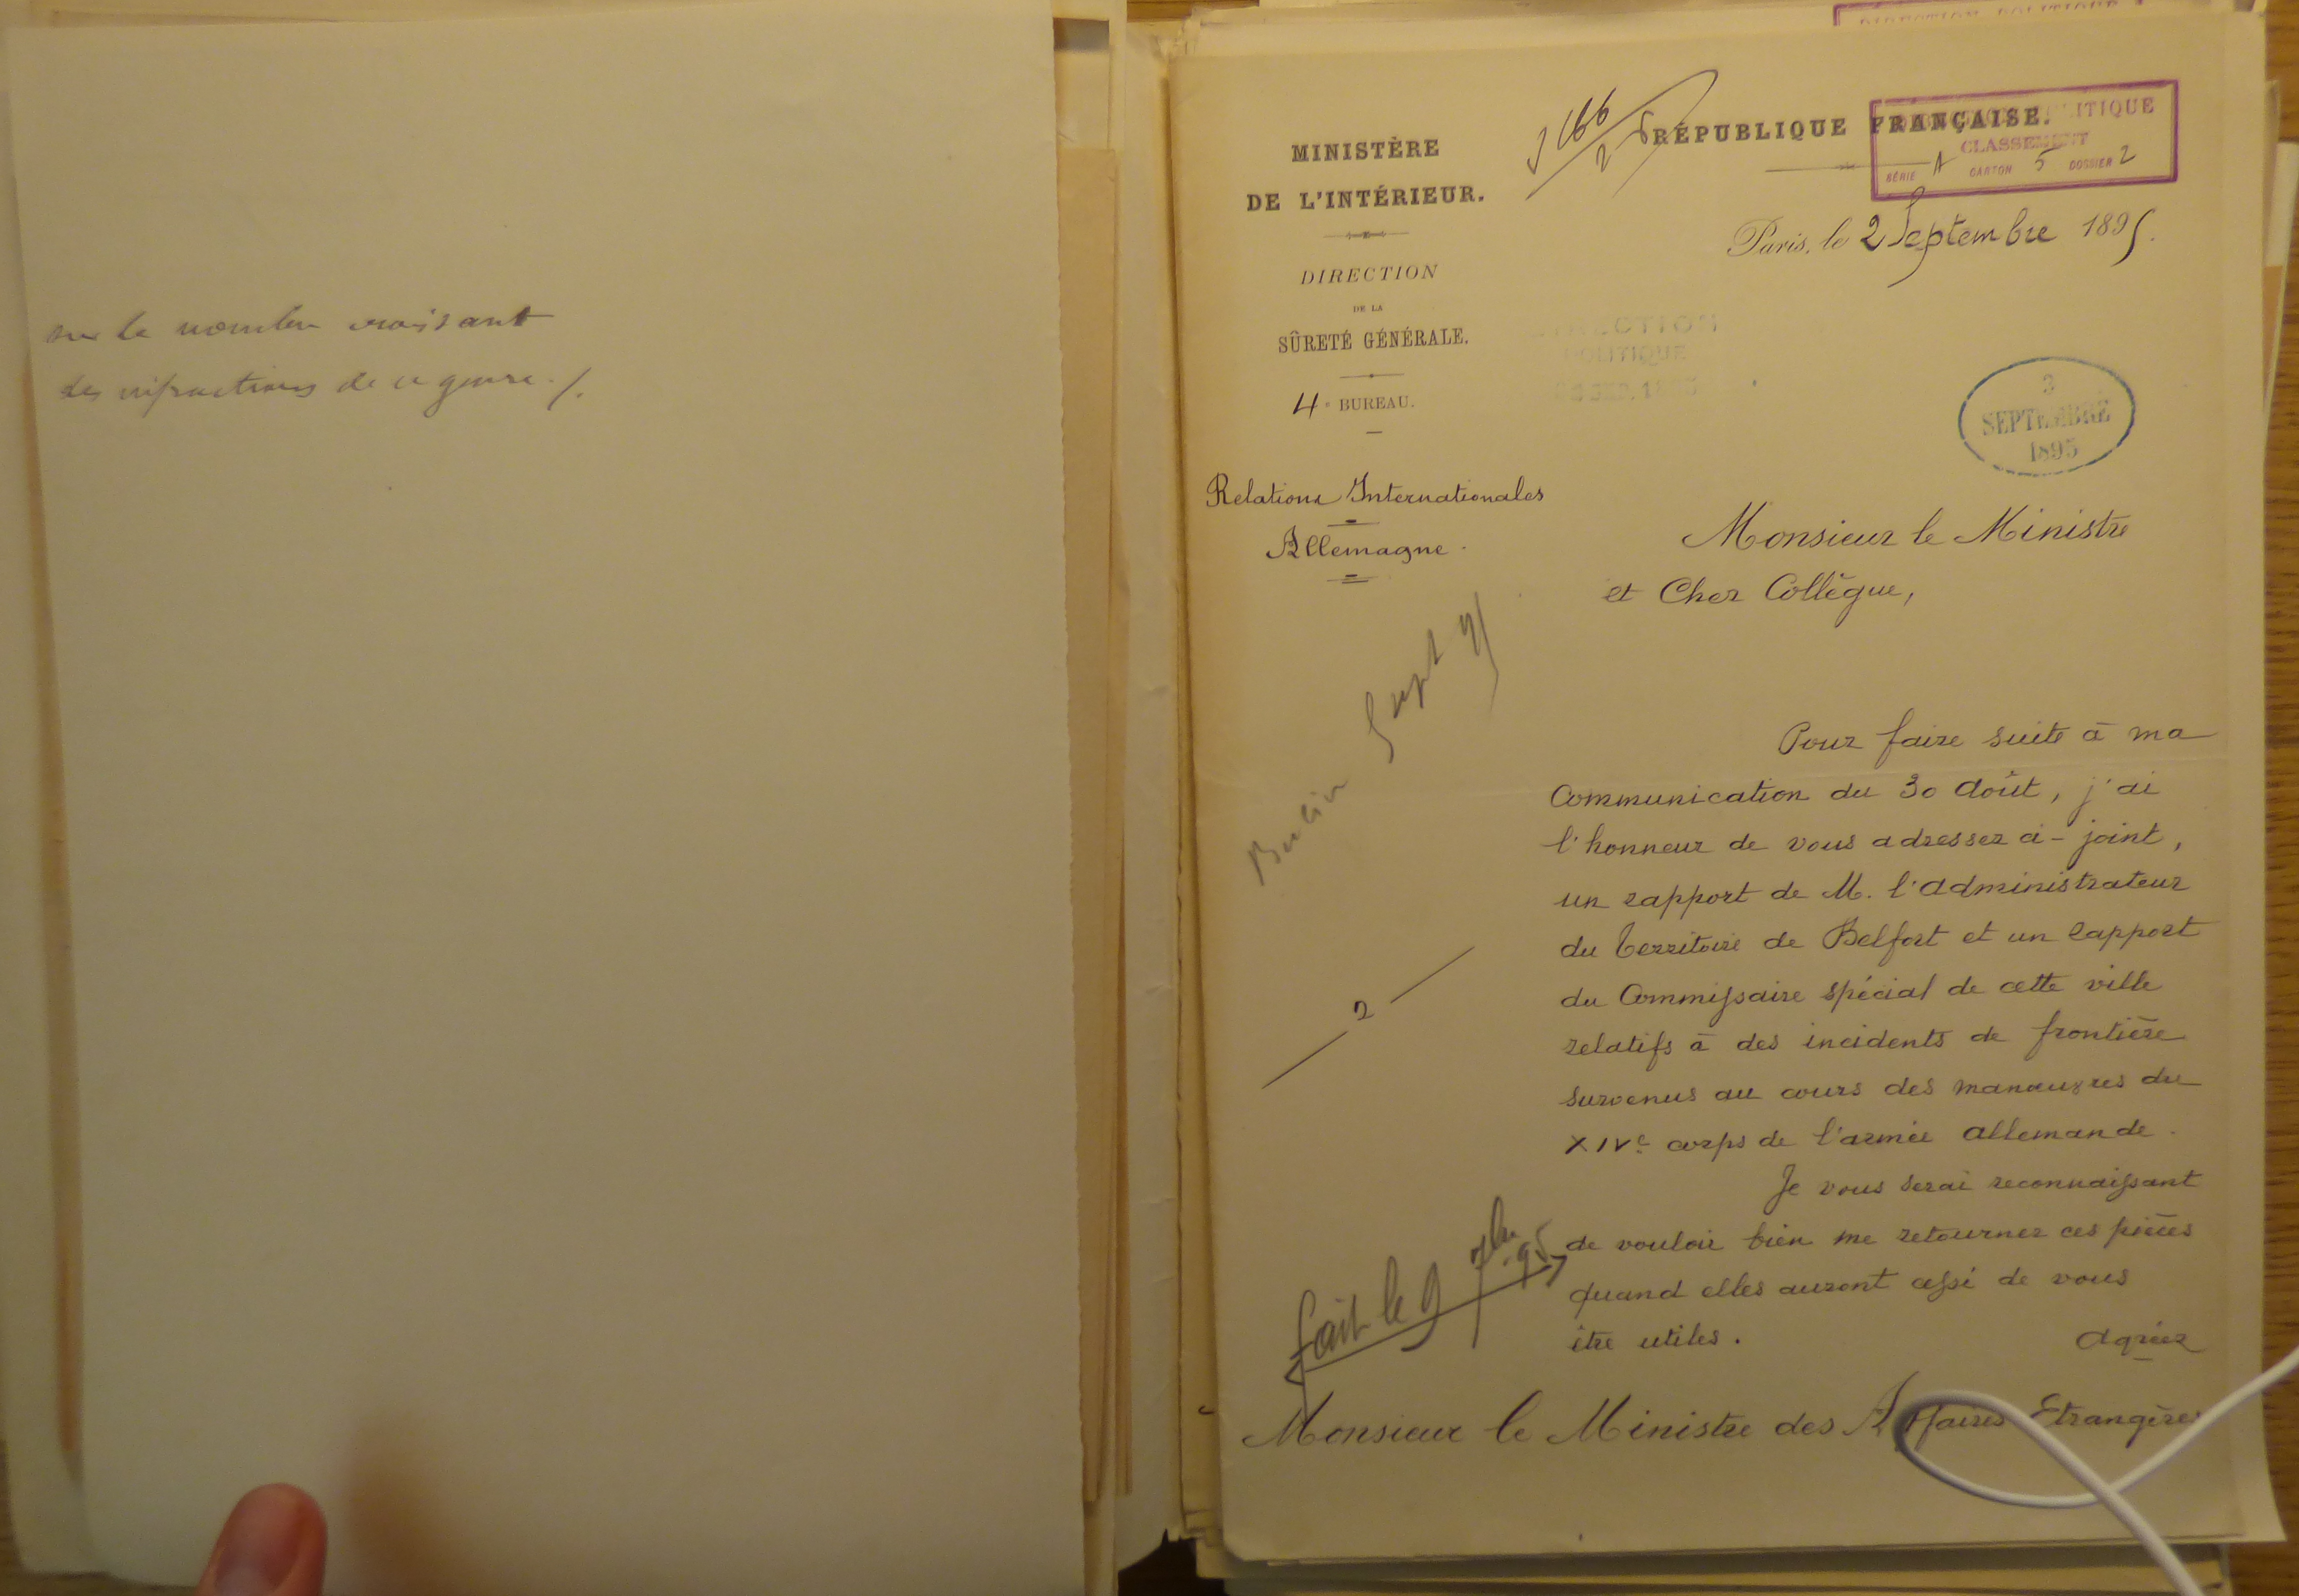 sur le nombre croissant
des infractions de ce genre ./.
MINISTÈRE
DE L'INTÉRIEUR.
DIRECTION
DE LA
SÛRETÉ GÉNÉRALE.
4e BUREAU.
Relations Internationales
Allemagne.
Berlin Sept 95
2
fait le 9 7bre 95
RÉPUBLIQUE FRANÇAISE.
DIRECTION POLITIQUE
CLASSEMENT
SÉRIE A CARTON 5 DOSSIER 2
Paris, le 2 Septembre 1895.
DIRECTION
POLITIQUE
SEP. 1895
3
SEPTEMBRE
1895
Monsieur le Ministre
et Cher Collègue,
Pour faire suite à ma
Communication du 30 Août, j'ai
l'honneur de vous adresser ci-joint,
un rapport de M. l'administrateur
du Territoire de Belfort et un rapport
du Commissaire spécial de cette ville
relatifs à des incidents de frontière
survenus au cours des manœuvres du
XIVe corps de l'armée allemande.
Je vous serai reconnaissant
de vouloir bien me retourner ces pièces
quand elles auront cessé de vous
être utiles.
Agréez
Monsieur le Ministre des Affaires Etrangères